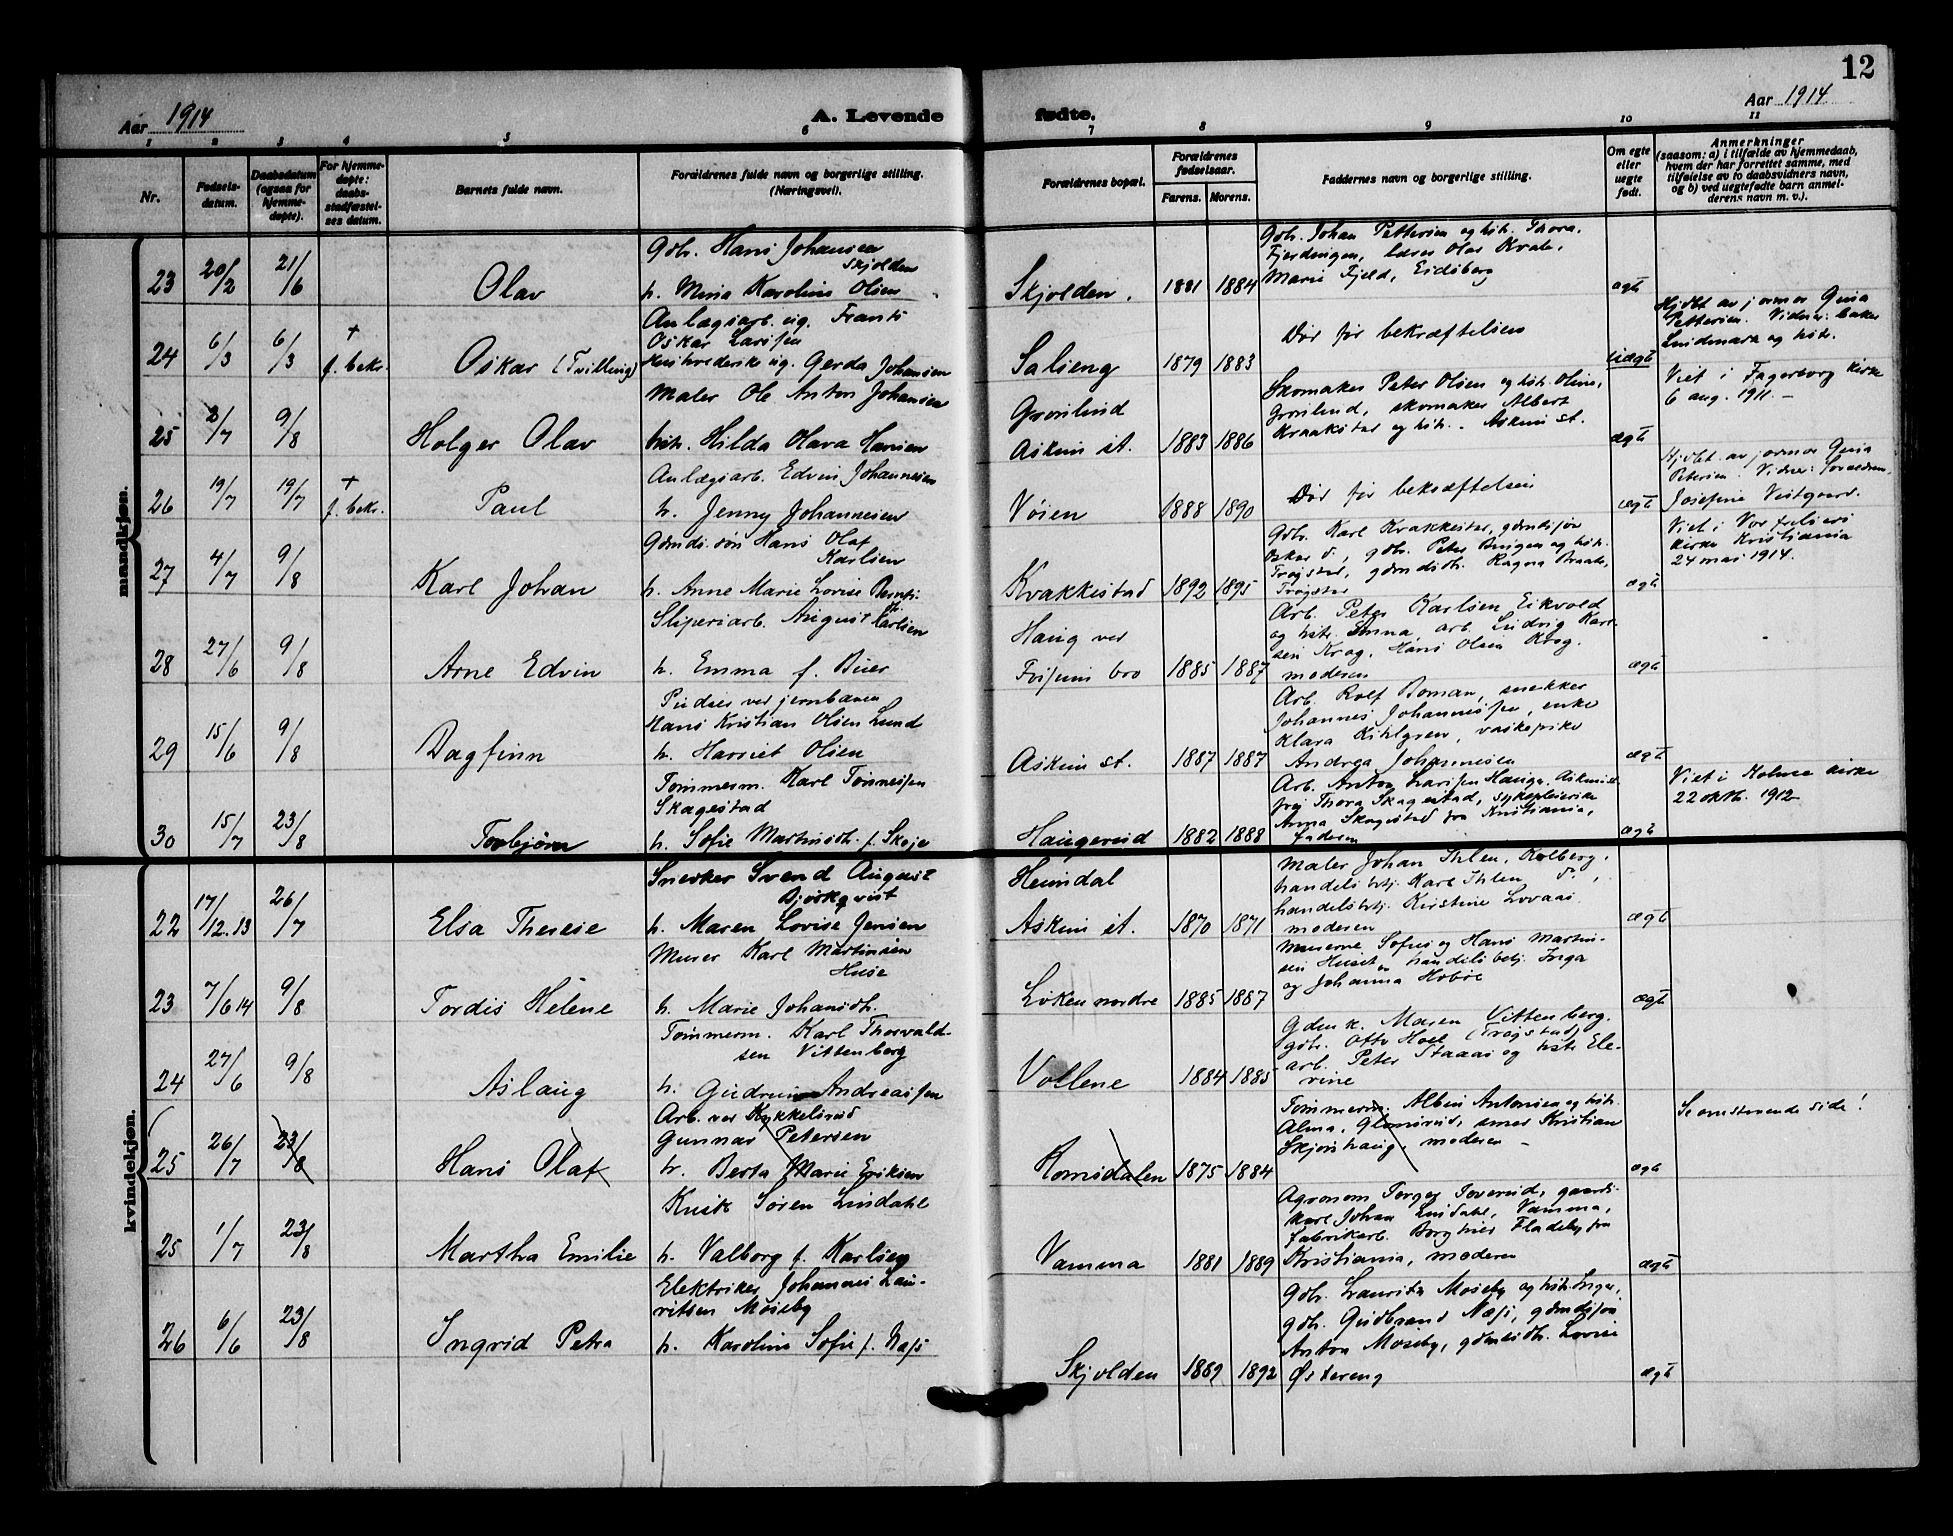 12
Aar 1914
A. Levende
fødte.
Aar 1914
1 2 3 4 5 6 7 8 9 10 11
Nr.
Fødsels-
datum.
Daabsdatum
(ogsaa for
hjemme-
døpte).
For hjemme-
døpte:
daabs-
stadfæstel-
ses datum.
Barnets fulde navn.
Forældrenes fulde navn og borgerlige stilling.
(Næringsvei).
Forældrenes bopæl.
Forældrenes
fødselsaar.
Farens. Morens.
Faddernes navn og borgerlige stilling.
Om egte
eller
uegte
født.
Anmerkninger
(saasom: a) i tilfælde av hjemmedaab,
hvem der har forrettet samme, med
tilføielse av to daabsvidners navn,
og b) ved uegtefødte barn anmel-
derens navn m. v.).
mandkjøn.
23 20/2 21/6 Olav
Gbr. Hans Johansen
Skjolden
h. Mina Karoline Olsen
Skjolden. 1881 1884
Gbr. Johan Pettersen og hstr. Thora,
Fjerdingen, lærer Olar
Marie Fjeld, Eidsberg
ægt
24 6/3 6/3 +
f. bekr. Oskar (Tvilling)
Anlægsarb. ug. Frants
Oskar Larssen
ug. Gerda Johansen
Salieng 1879 1883
Død før bekræftelsen
uægt
Hjdbt av jormor Gina
Pettersen. Vidner: baker
Lindemara og hstr.
25 2/7 9/8 Holger Olav
Maler Ole Anton Johansen
hstr. Hilda Olava Hansen
Grønlund
Askim st. 1883 1886
Skomaker Peter Olsen og hstr. Oline,
Grønlund, skomaker Albert
Kraakstad og hstr. - Askim st.
ægt
Viet i Fagerborg kirke
6 aug. 1911. -
26 19/7 19/7 +
f. bekr. Paul
Anlægsarb. Edvin Johannesen
h. Jenny Johannesen
Vøien 1888 1890
Død før bekræftelsen
ægt
Hjdbt. av jormor Gina
Petersen. Vidner: forældrene,
Josefine Vestgaard.
27 4/7 9/8 Karl Johan
Gdmds. søn Hans Olaf
Karlsen
h. Anne Marie Lovise
Krakkestad 1892 1895
Gbr. Karl Krakkestad, gdmdssøn
Oskar d., gbr. Peter Bingen og hstr.
Trøgstad, gdmdsdtr. Ragna Braate,
Trøgstad
ægt
Viet i Vor frelsers
kirke Kristiania
24 mai 1914.
28 27/6 9/8 Arne Edvin
Sliperiarb. August Karlsen
h. Emma f. Buer
Haug ver
Fossum bro 1885 1887
Arb. Peter Karlsen Eikvold
og hstr. Emma, arb. Ludvig Karl-
sen Krog, Hans Olsen Krog.
moderen
ægt
29 15/6 9/8 Dagfinn
Pudser ved jernbanen
Hans Kristian Olsen Lund
h. Harriet Olsen
Askim st. 1887 1887
Arb. Rolf Boman, snekker
Johannes Johannessen, enke
Klara Kihlgren, vaskepike
Andrea Johannesen
ægt
30 15/7 23/8 Torbjørn
Tømmerm. Karl Tønnessen
Skagestad
h. Sofie Martinsdtr. f. Skøje
Haugerud 1882 1888
Arb. Anton Larssen Hauger, Askim st.
frøj Thora Skagestad, sykepleierske
Anna Skagestad fra Kristiania,
faderen
ægt
Viet i Holme kirke
22 okth. 1912
kvindekjøn.
22 17/12.13 26/7 Elsa Therese
Snekker Svend August
Bjørkqvist
h. Maren Lovise Jensen
Heimdal
Askim st. 1870 1871
Maler Johan Ihlen, Kolberg,
handelsbetj. Karl Ihlen do,
handelsbetj. Kirstine Lovaas,
moderen
ægt
23 7/6 14 9/8 Tordis Helene
Murer Karl Martinsen
Huse
h. Marie Johansdtr.
Løken nordre 1885 1887
Murerne Sofus og Hans Martin-
sen Huset, handelsbetj. Inga
og Johanna Hobøl
ægt
24 27/6 9/8 Aslaug
Tømmerm. Karl Thorvald-
sen Vittenberg
h. Gudrun Andreassen
Vollene 1884 1885
Gdenk. Maren Vittenberg.
gbr. Otto Hoel (Trøgstad)
arb. Peter Staaas og hstr. Ele-
rine
25 26/7 23/8 Hans Olaf
Arb. ver Kykkelsrud
Gunnar Petersen
h. Berta Marie Eriksen
Romsdalen 1875 1884
Tømmerm. Albin Antonsen og hstr.
Alma, Glomsrud, Kristian
Skjørshaug, moderen -
ægt
Se omstaaende side!
25 1/7 23/8 Martha Emilie
Kusk Søren Lindahl
h. Valborg f. Karlsen
Vamma 1881 1889
Agronom Torger Toverud, gaards-
karl Johan Lindahl, Vamma,
fabrikarb. Borghild Fladeby fra
Kristiania, moderen
ægt
26 6/6 23/8 Ingrid Petra
Elektriker Johannes Lau-
ritsen Moseby
h. Karoline Sofie f. Næss
Skjolden 1889 1892
Gbr. Lauritz Moseby og hstr. Inga,
gbr. Gudbrand Næss, gdmdssøn
Anton Moseby, gdmdsdtr. Lovise
Østereng
ægt